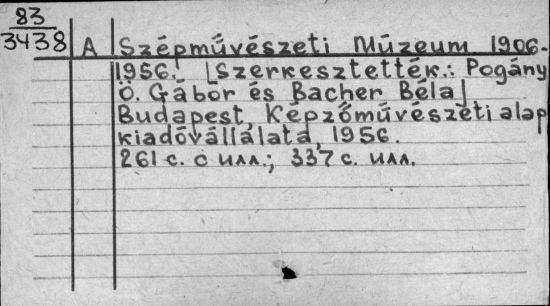 83
3438 A Szépművészeti Múzeum 1906-
1956. |Szerkesztették: Pogány
Ö. Gábor és Bacher Béla|
Budapest, Képzőművészeti alap
kiadóvállalata, 1956.
261 с. с илл.; 337 с. илл.